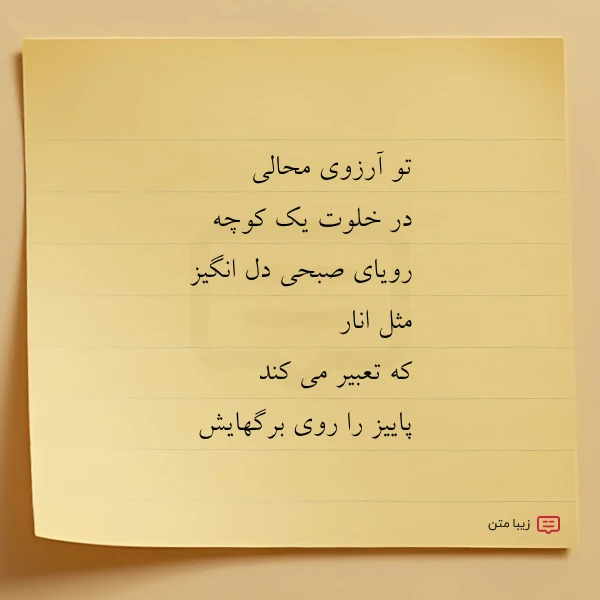 تو آرزوی محالی
در خلوت یک کوچه
رویای صبحی دل انگیز
مثل انار
که تعبیر می کند
پاییز را روی برگهایش
زیبا متن